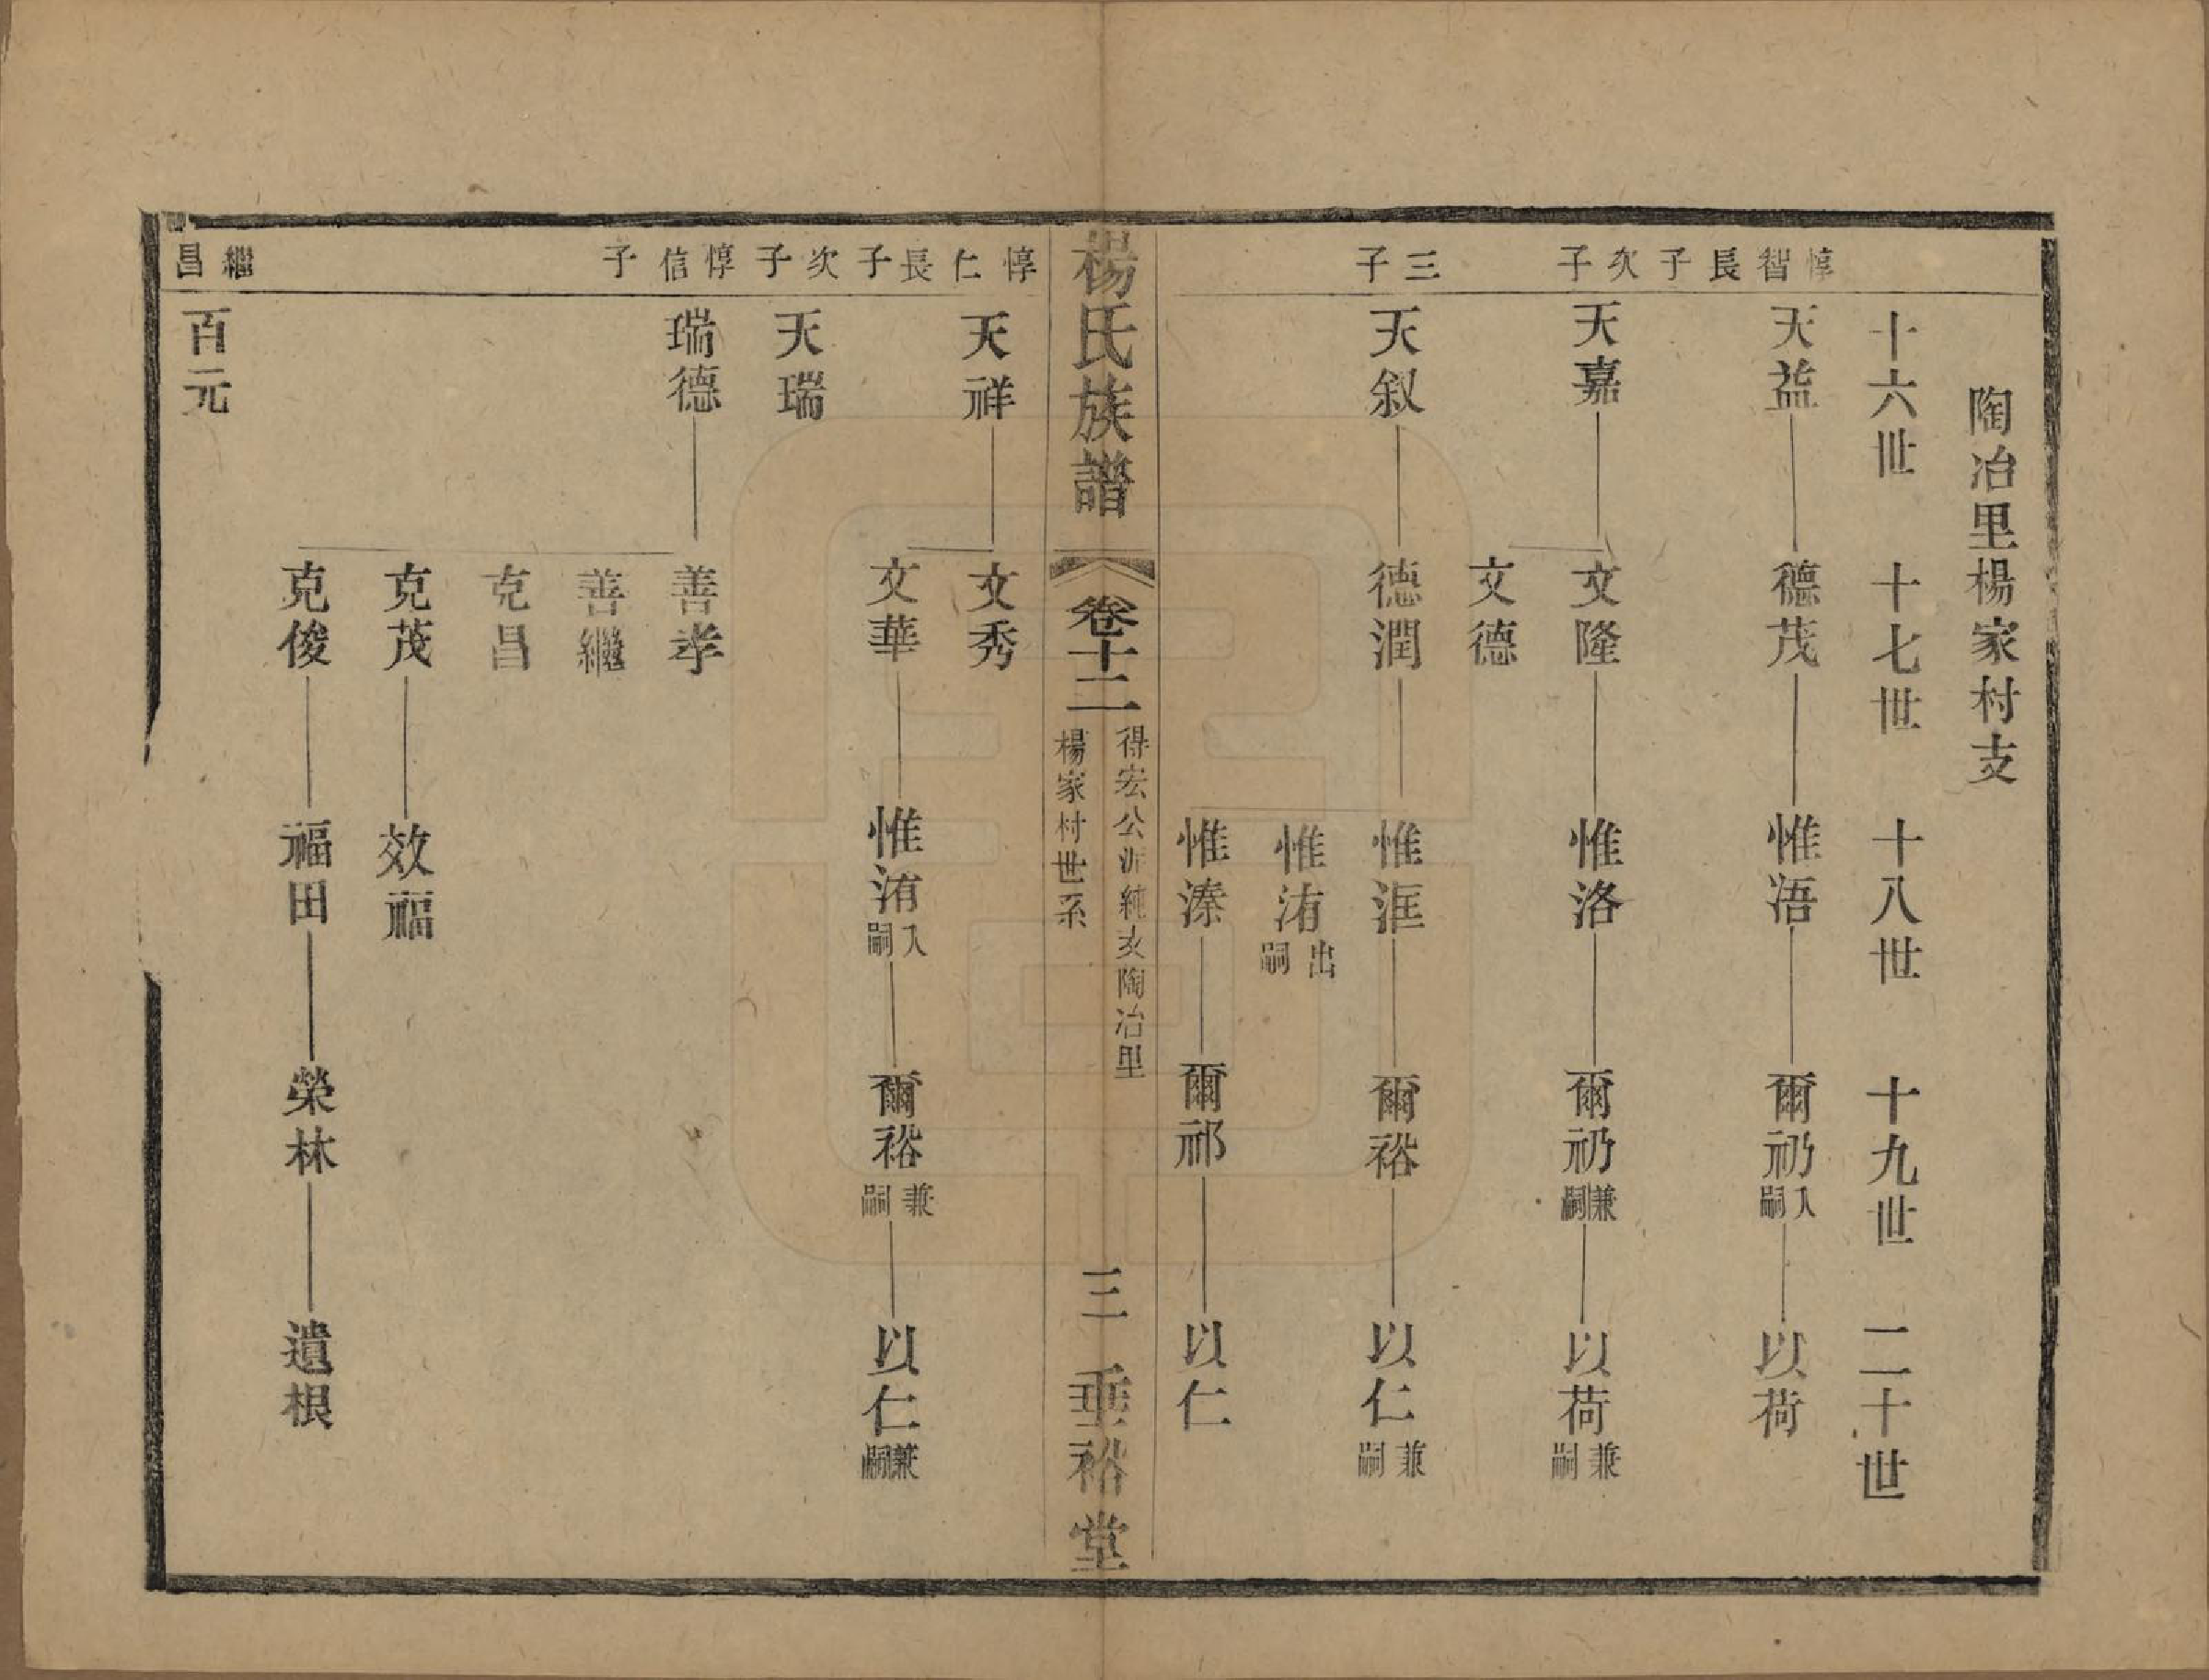 陶冶里楊家村支
十六世 十七世 十八世 十九世 二十世
惇智長子 次子 三子
天益 德茂 惟浯 爾礽入嗣 以荷
天嘉 文隆 惟洛 爾礽兼嗣 以荷兼嗣
文德
天叙 德潤 惟洭 爾裕 以仁兼嗣
惟洧出嗣
惟溱 爾祁 以仁
楊氏族譜 卷十二 得宏公派純支陶冶里
楊家村世系
三 垂裕堂
惇仁長子 次子 惇信子 繼昌
天祥 文秀
文華 惟洧入嗣 爾裕兼嗣 以仁兼嗣
天瑞
瑞德 善孝
善繼
克昌
克茂 效福
克俊 福田 榮林 遺根
百元